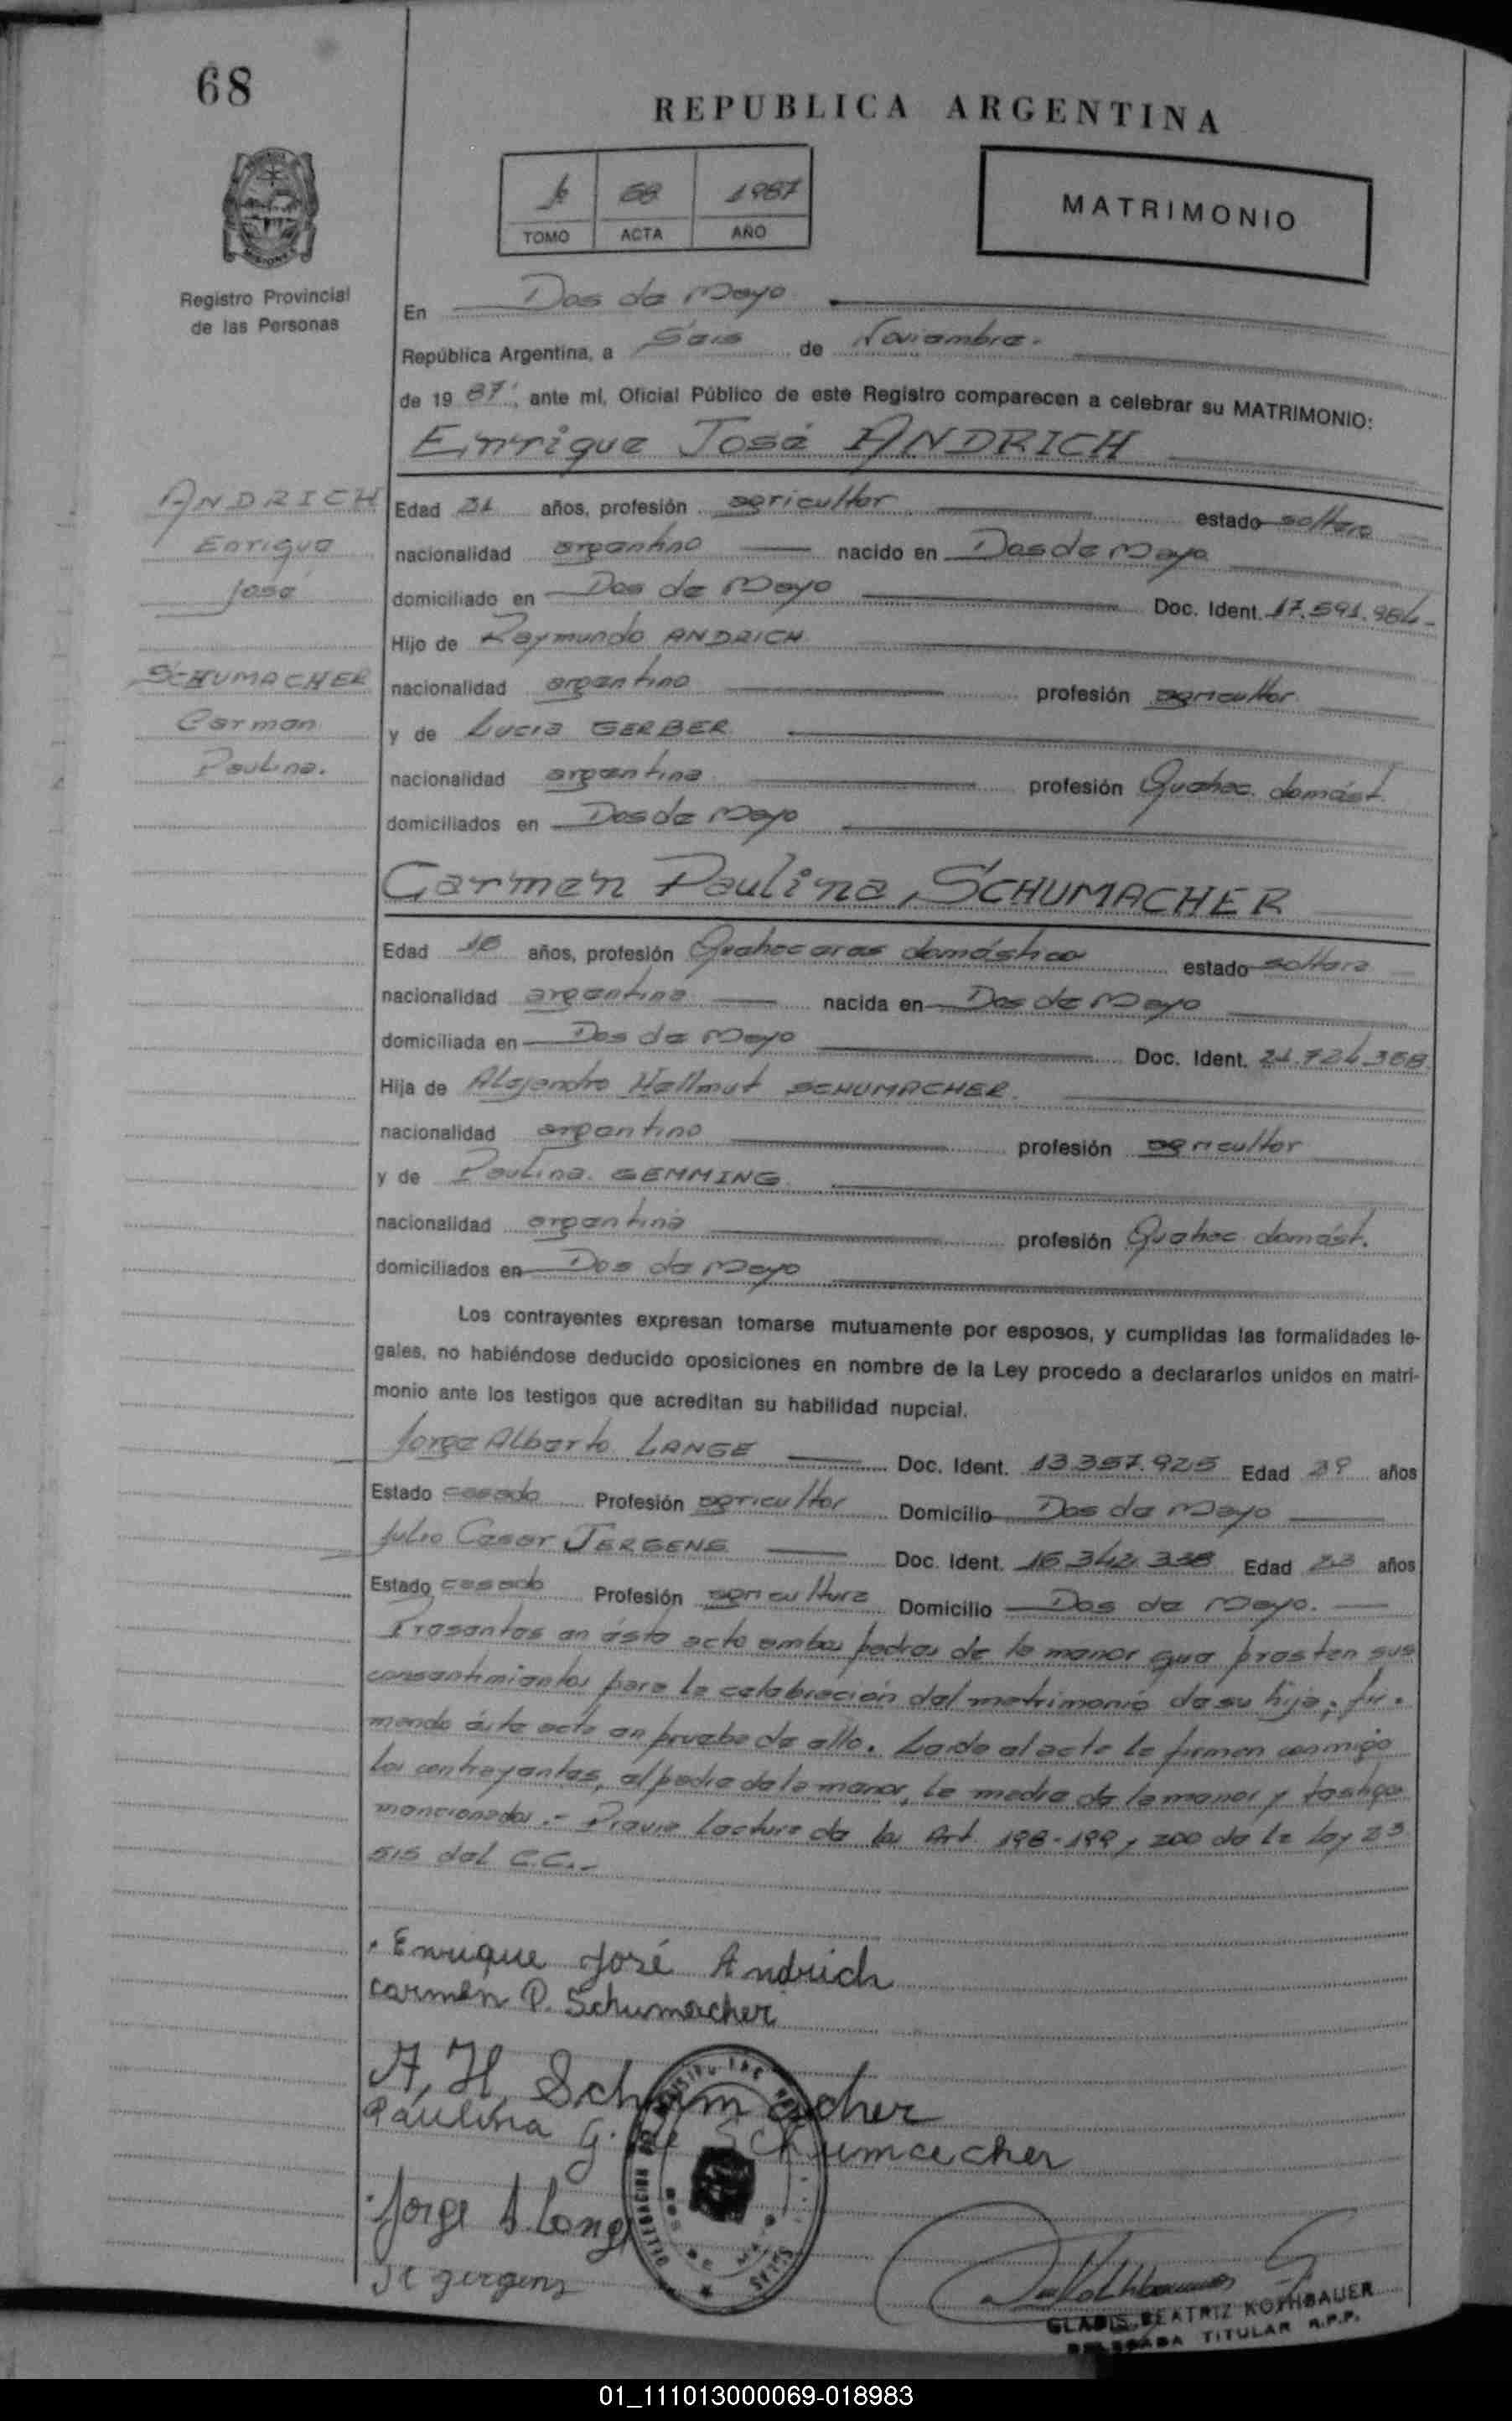 68
REPUBLICA ARGENTINA
68 1987
TOMO ACTA AÑO
MATRIMONIO
Registro Provincial
de las Personas
En Dos de Mayo
República Argentina, a Seis de Noviembre.
de 19 87, ante mí, Oficial Público de este Registro comparecen a celebrar su MATRIMONIO:
Enrique José ANDRICH
ANDRICH
Enrique
José
SCHUMACHER
Carmen
Paulina.
Edad 21 años, profesión agricultor estado soltero
nacionalidad argentino nacido en Dos de Mayo
domiciliado en Dos de Mayo Doc. Ident. 17.591.984-
Hijo de Raymundo ANDRICH
nacionalidad argentino profesión agricultor
y de Lucia GERBER
nacionalidad argentina profesión Quehac. domést.
domiciliados en Dos de Mayo
Carmen Paulina SCHUMACHER
Edad 16 años, profesión Quehaceres doméstico estado soltera
nacionalidad argentina nacida en Dos de Mayo
domiciliada en Dos de Mayo Doc. Ident. 21.724.358
Hija de Alejandro Hellmut SCHUMACHER.
nacionalidad argentino profesión agricultor
y de Paulina GEMMING
nacionalidad argentina profesión Quehac domést.
domiciliados en Dos de Mayo
Los contrayentes expresan tomarse mutuamente por esposos, y cumplidas las formalidades le-
gales, no habiéndose deducido oposiciones en nombre de la Ley procedo a declararlos unidos en matri-
monio ante los testigos que acreditan su habilidad nupcial.
Jorge Alberto LANGE Doc. Ident. 13.357.925 Edad 29 años
Estado casado Profesión agricultor Domicilio Dos de Mayo
Julio Cesar JERGENS Doc. Ident. 16.342.338 Edad 23 años
Estado casado Profesión agricultura Domicilio Dos de Mayo.
Presentes en ésto acto ambos padres de la menor que prestan sus
consentimientos para la celebración del matrimonio de su hija; fir-
mando ésta acta en prueba de ello. Leida el acta la firman conmigo
los contrayentes, el padre de la menor, la madre de la menor y testigos
mencionados.- Previa lectura de los Art. 198-199 y 200 de la ley 23
515 del C.C.-
Enrique José Andrich
Carmen P. Schumacher
A. H. Schumacher
Paulina G. de Schumacher
Jorge A. Lange
J C Jergens
GLADIS BEATRIZ KOTHBAUER
DELEGADA TITULAR R.P.P.
01_111013000069-018983